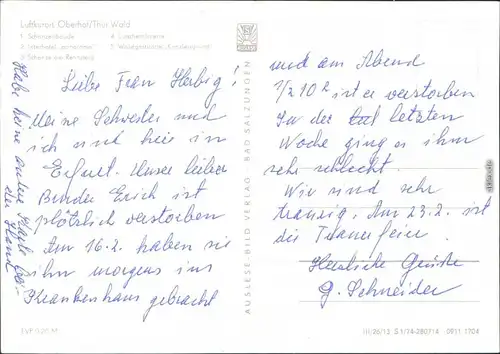 Luftkurort Oberhof/Thür. Wald
1. Schanzenbaude
4. Luisensitzsteine
2. Interhotel „panorama"
5. Waldgaststätte „Kanzlersgrund"
3. Schanze am Rennsteig
Liebe Frau Herbig!
Meine Schwester und
ich sind hier in
Erfurt. Unser lieber
Bruder Erich ist
plötzlich verstorben
Am 16.2. haben sie
ihn morgens ins
Krankenhaus gebracht
Habe keine andere Karte bei
der Hand
und am Abend
1/2 10 h ist er verstorben
In der letzten
Woche ging es ihm
sehr schlecht.
Wir sind sehr
traurig. Am 23.2. ist
die Trauerfeier.
Herzliche Grüße
G. Schneider
AUSLESE-BILD-VERLAG, BAD SALZUNGEN
III/26/13 S 1/74-280714 0911 1704